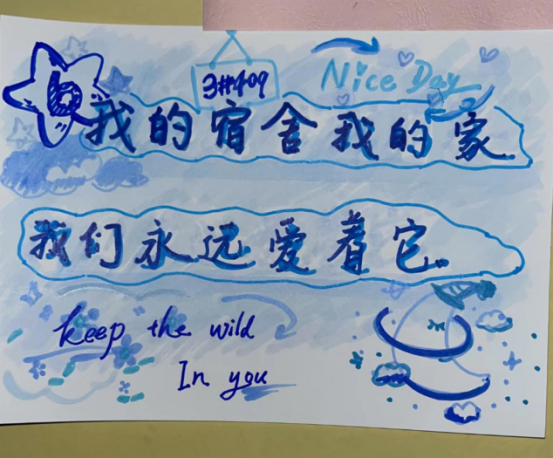 6
3#409
Nice Day
我的宿舍我的家
我们永远爱着它
keep the wild
In you